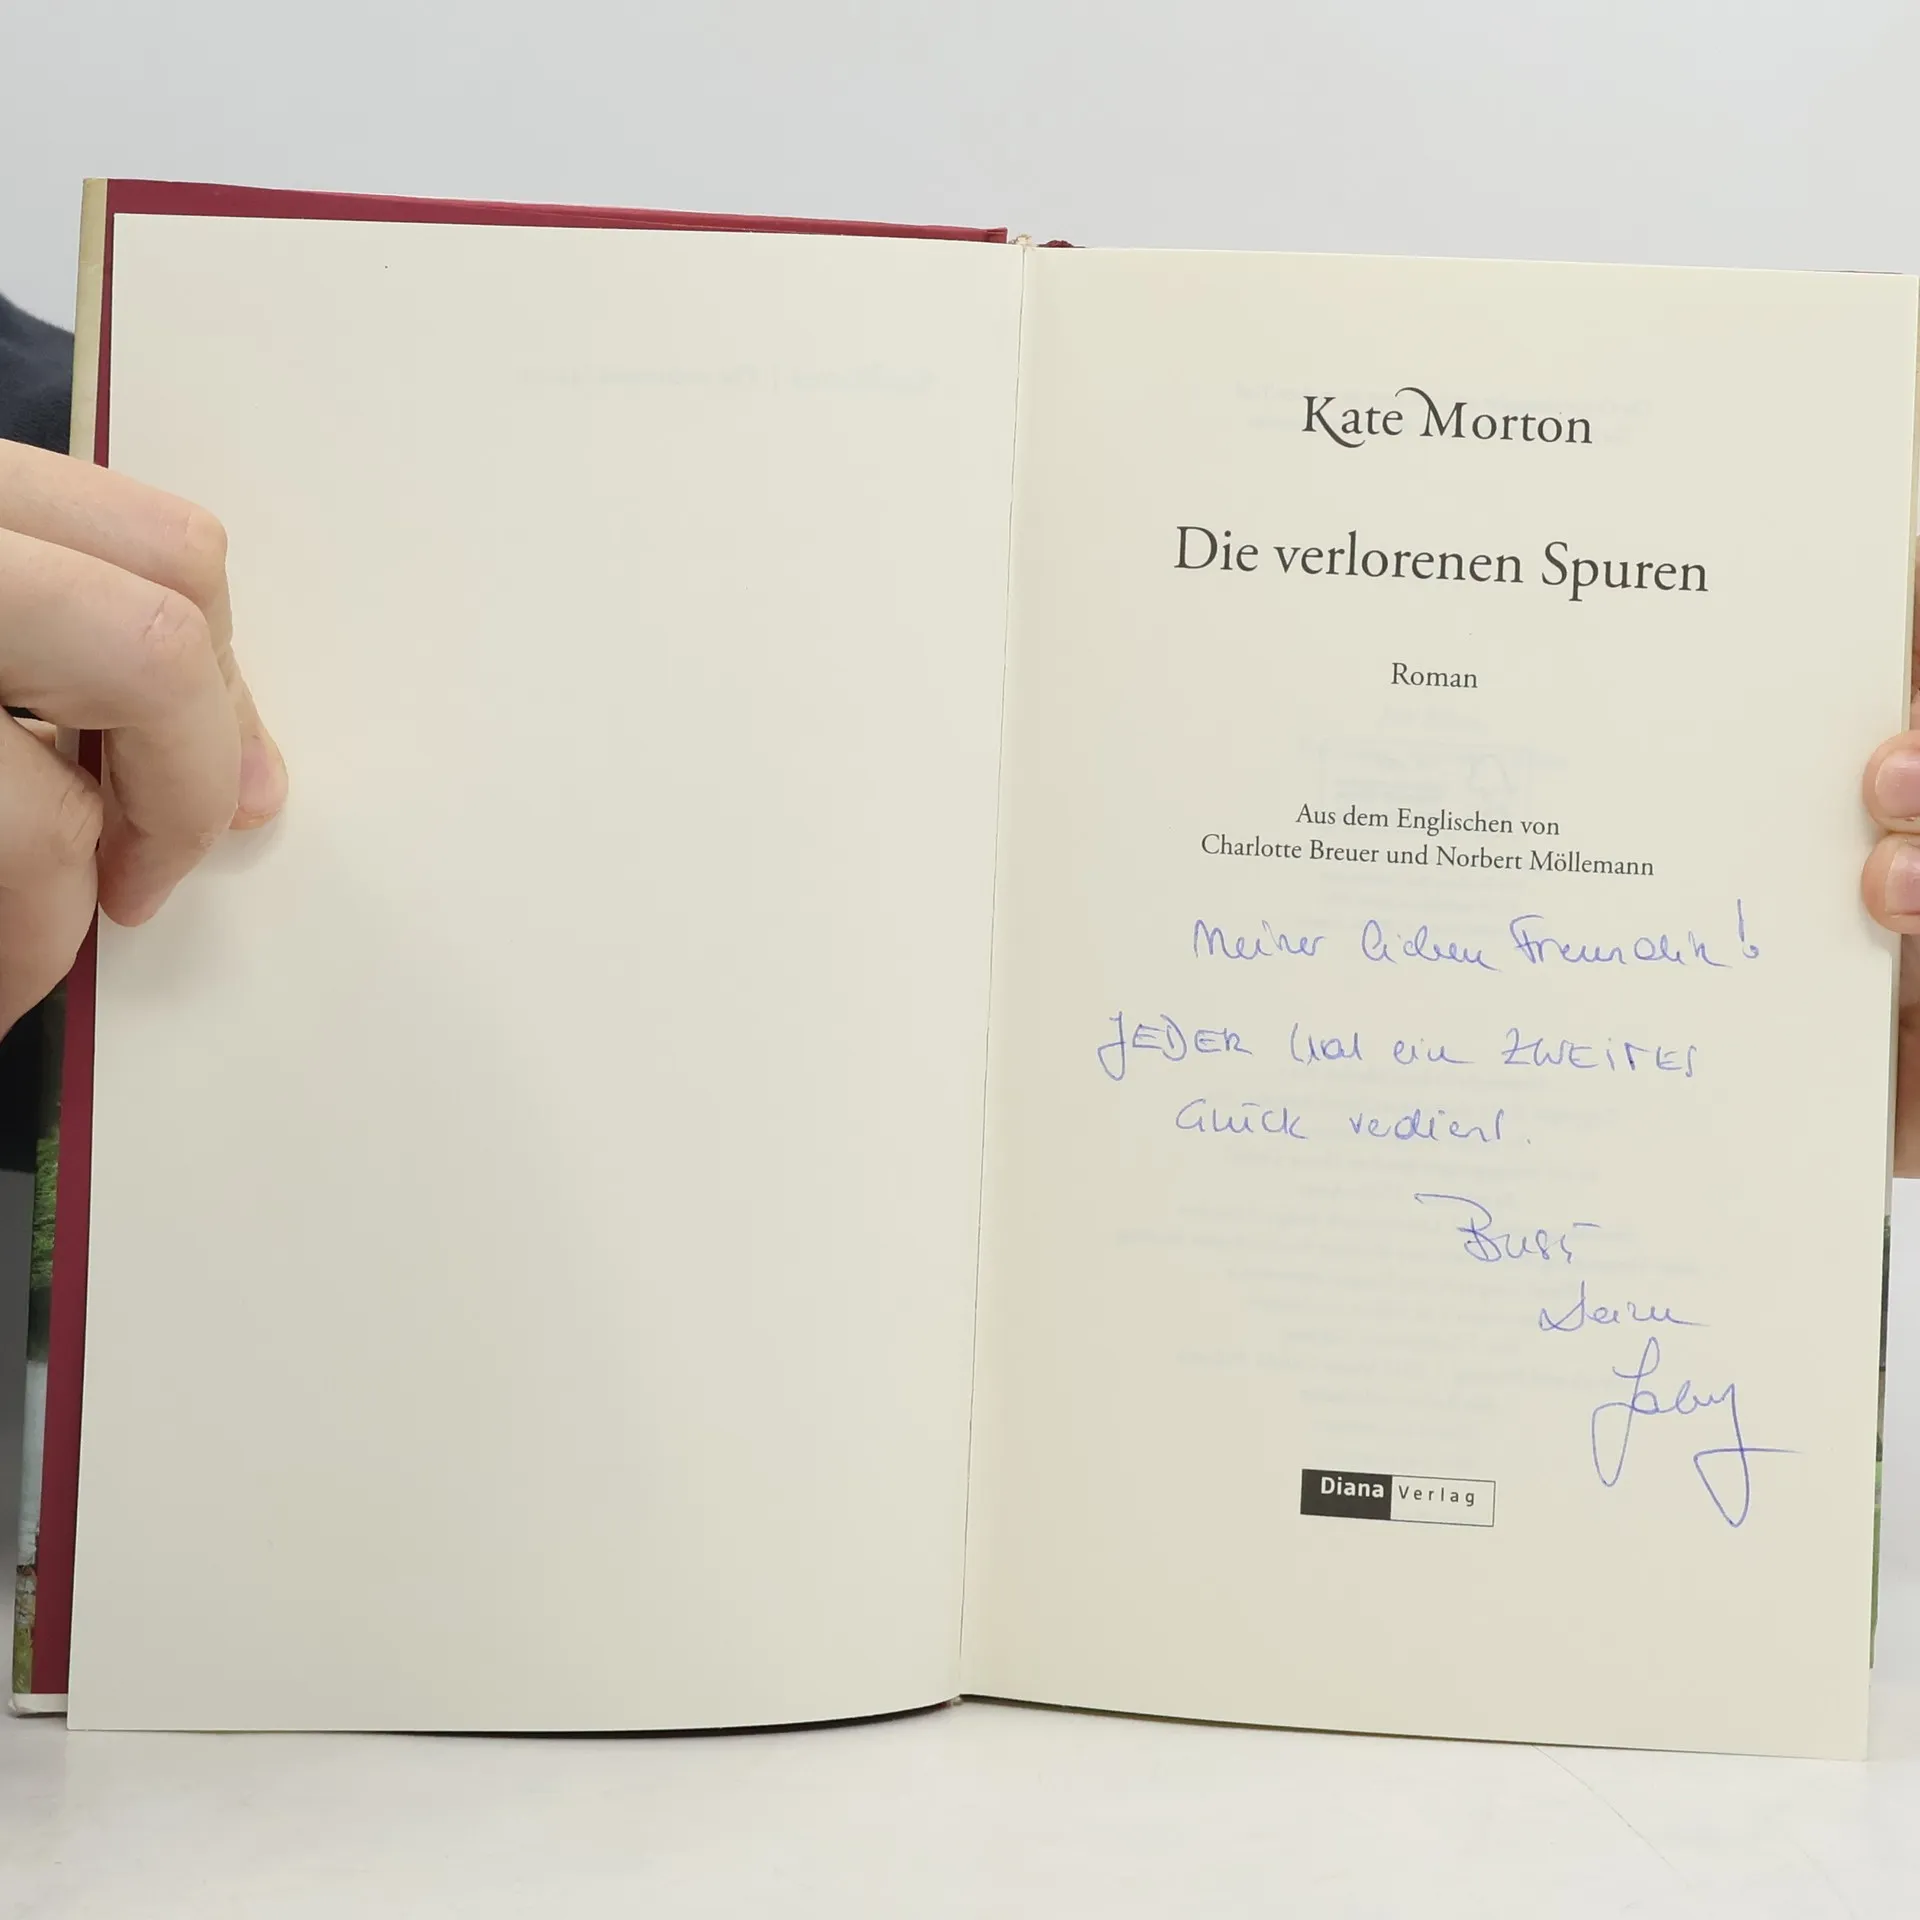 Kate Morton
Die verlorenen Spuren
Roman
Aus dem Englischen von
Charlotte Breuer und Norbert Möllemann
Meiner lieben Freundin!
JEDER hat ein ZWEITES
Glück verdient.
Bussi
Deine
Gaby
Diana Verlag